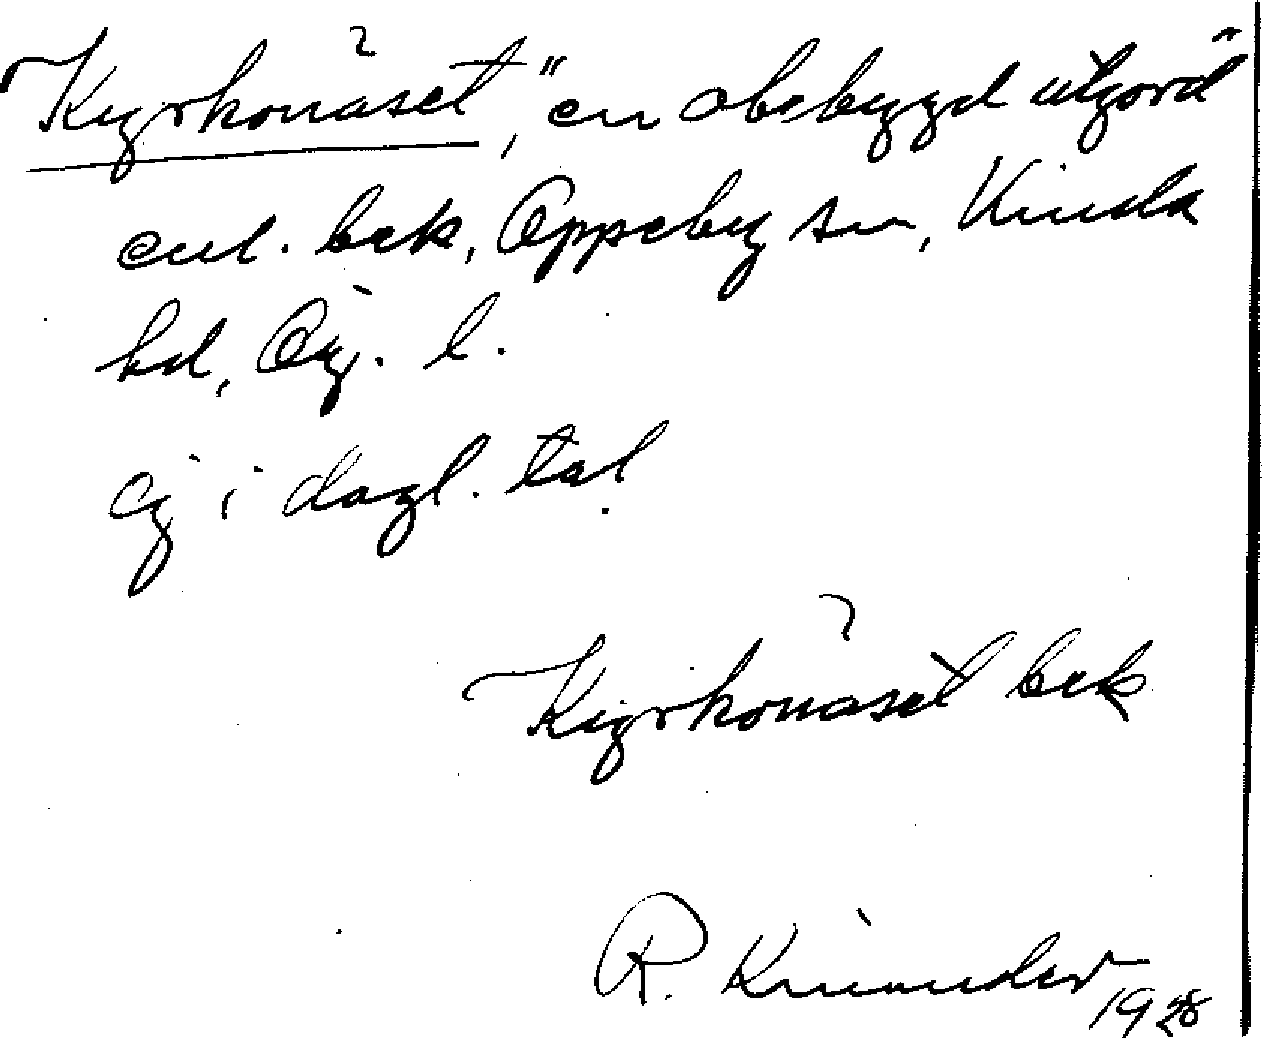 "Kyrkonäset", en obebyggd utjord
enl. bek, Oppeby sn, Kinda
hd, Ög. l.
Ej i dagl. tal
Kyrkonäset bek
R. Kinander
1928